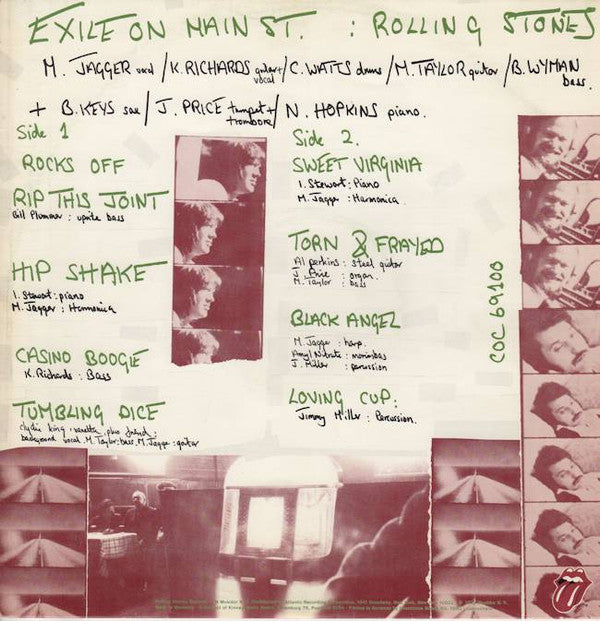 EXILE ON MAIN ST. : ROLLING STONES
M. JAGGER vocal / K. RICHARDS guitar + vocal / C. WATTS drums / M. TAYLOR guitar / B. WYMAN bass.
+ B. KEYS sax / J. PRICE trumpet + trombone / N. HOPKINS piano.
Side 1
ROCKS OFF
RIP THIS JOINT
Bill Plummer : uprite bass
HIP SHAKE
I. Stewart : piano
M. Jagger : Harmonica
CASINO BOOGIE
K. Richards : Bass
TUMBLING DICE
clydie king : vanetta, plus friend :
background vocal. M. Taylor : bass. M. Jagge : guitar
Side 2.
SWEET VIRGINIA
I. Stewart : Piano
M. Jagger : Harmonica
TORN & FRAYED
Al perkins : steel guitar
J. Price : organ.
M. Taylor : bass
BLACK ANGEL
M. Jagge : harp.
Amyl Nitrate : marimbas
J. Miller : percussion
LOVING CUP :
Jimmy Miller : Percussion.
COC 69100